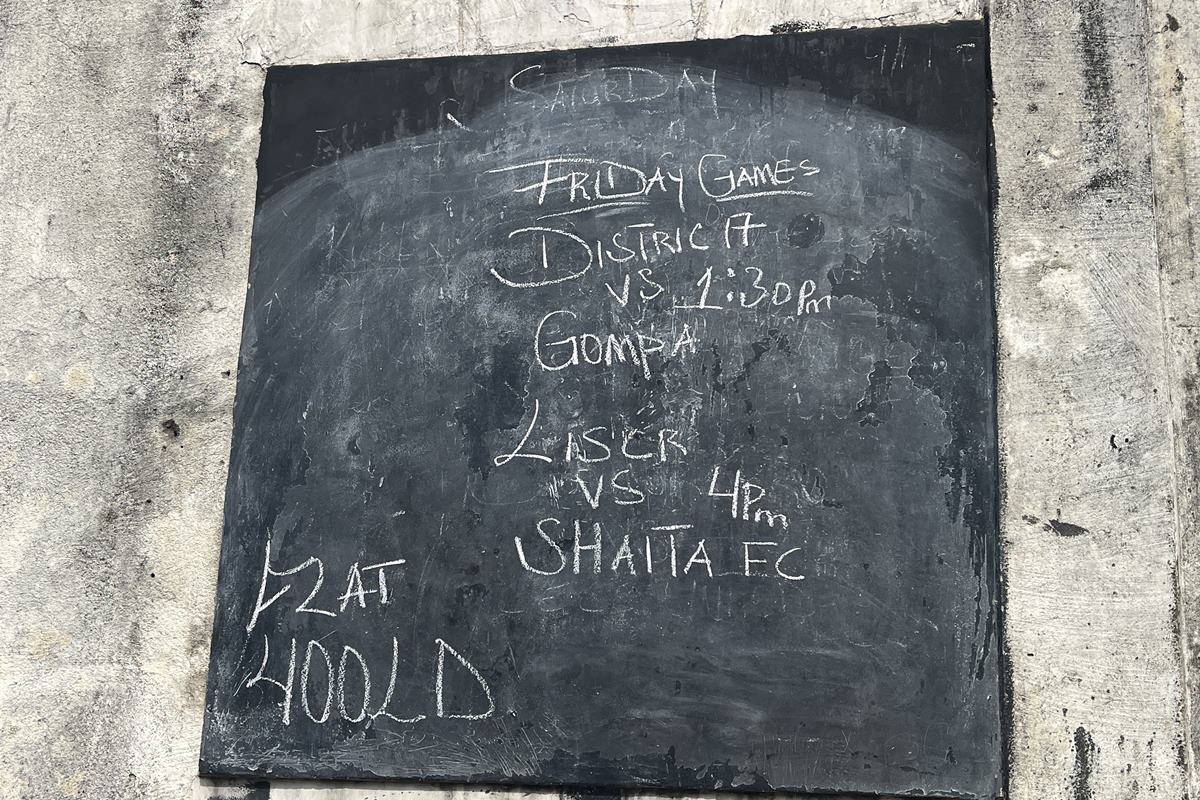 SATURDAY
FRIDAY GAMES
DISTRICT 17
VS 1:30 Pm
GOMPA
LISCR
VS 4Pm
SHAITA FC
400LD